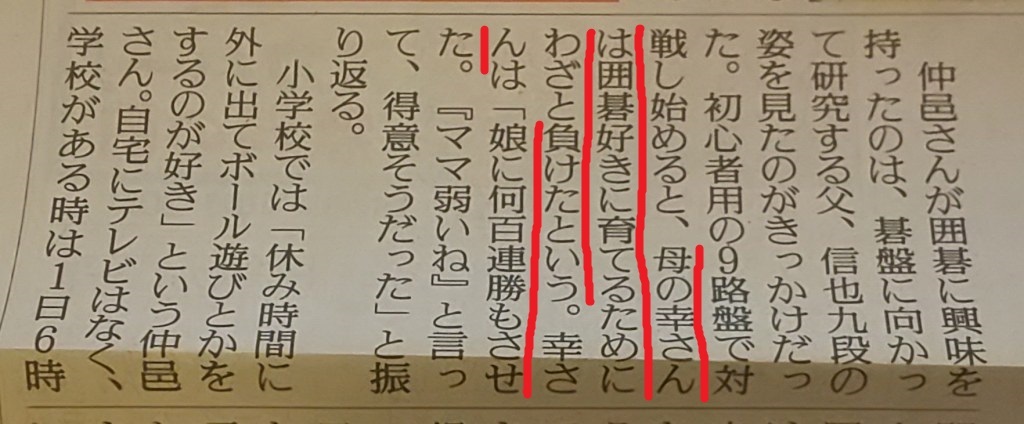 仲邑さんが囲碁に興味を
持ったのは、碁盤に向かっ
て研究する父、信也九段の
姿を見たのがきっかけだっ
た。初心者用の9路盤で対
戦し始めると、母の幸さん
は囲碁好きに育てるために
わざと負けたという。幸さ
んは「娘に何百連勝もさせ
た。『ママ弱いね』と言っ
て、得意そうだった」と振
り返る。
小学校では「休み時間に
外に出てボール遊びとかを
するのが好き」という仲邑
さん。自宅にテレビはなく、
学校がある時は1日6時